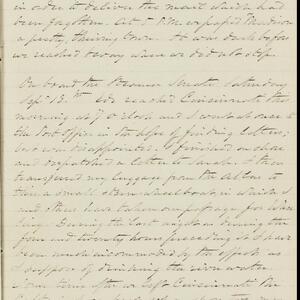 in order to deliver the mail which had
been forgotten. At 5 P.M. we passed Madison
a pretty, thriving town. It was dark before
we reached
On board the Steamer Senate, Saturday
Sept. 13th. We reached Cincinnati this
morning at 7 o'clock and I went at once to
the Post Office in the hope of finding letters;
but was disappointed. I finished on shore
and despatched a letter to Sarah. I then
transferred my luggage from the
to a small stern wheel boat, in which I
and others have taken our passage for
During the last night and during the
four and twenty hours preceding it I have
been much incommoded by the effects as
I suppose of drinking the river water
Some time after we left Cincinnati the